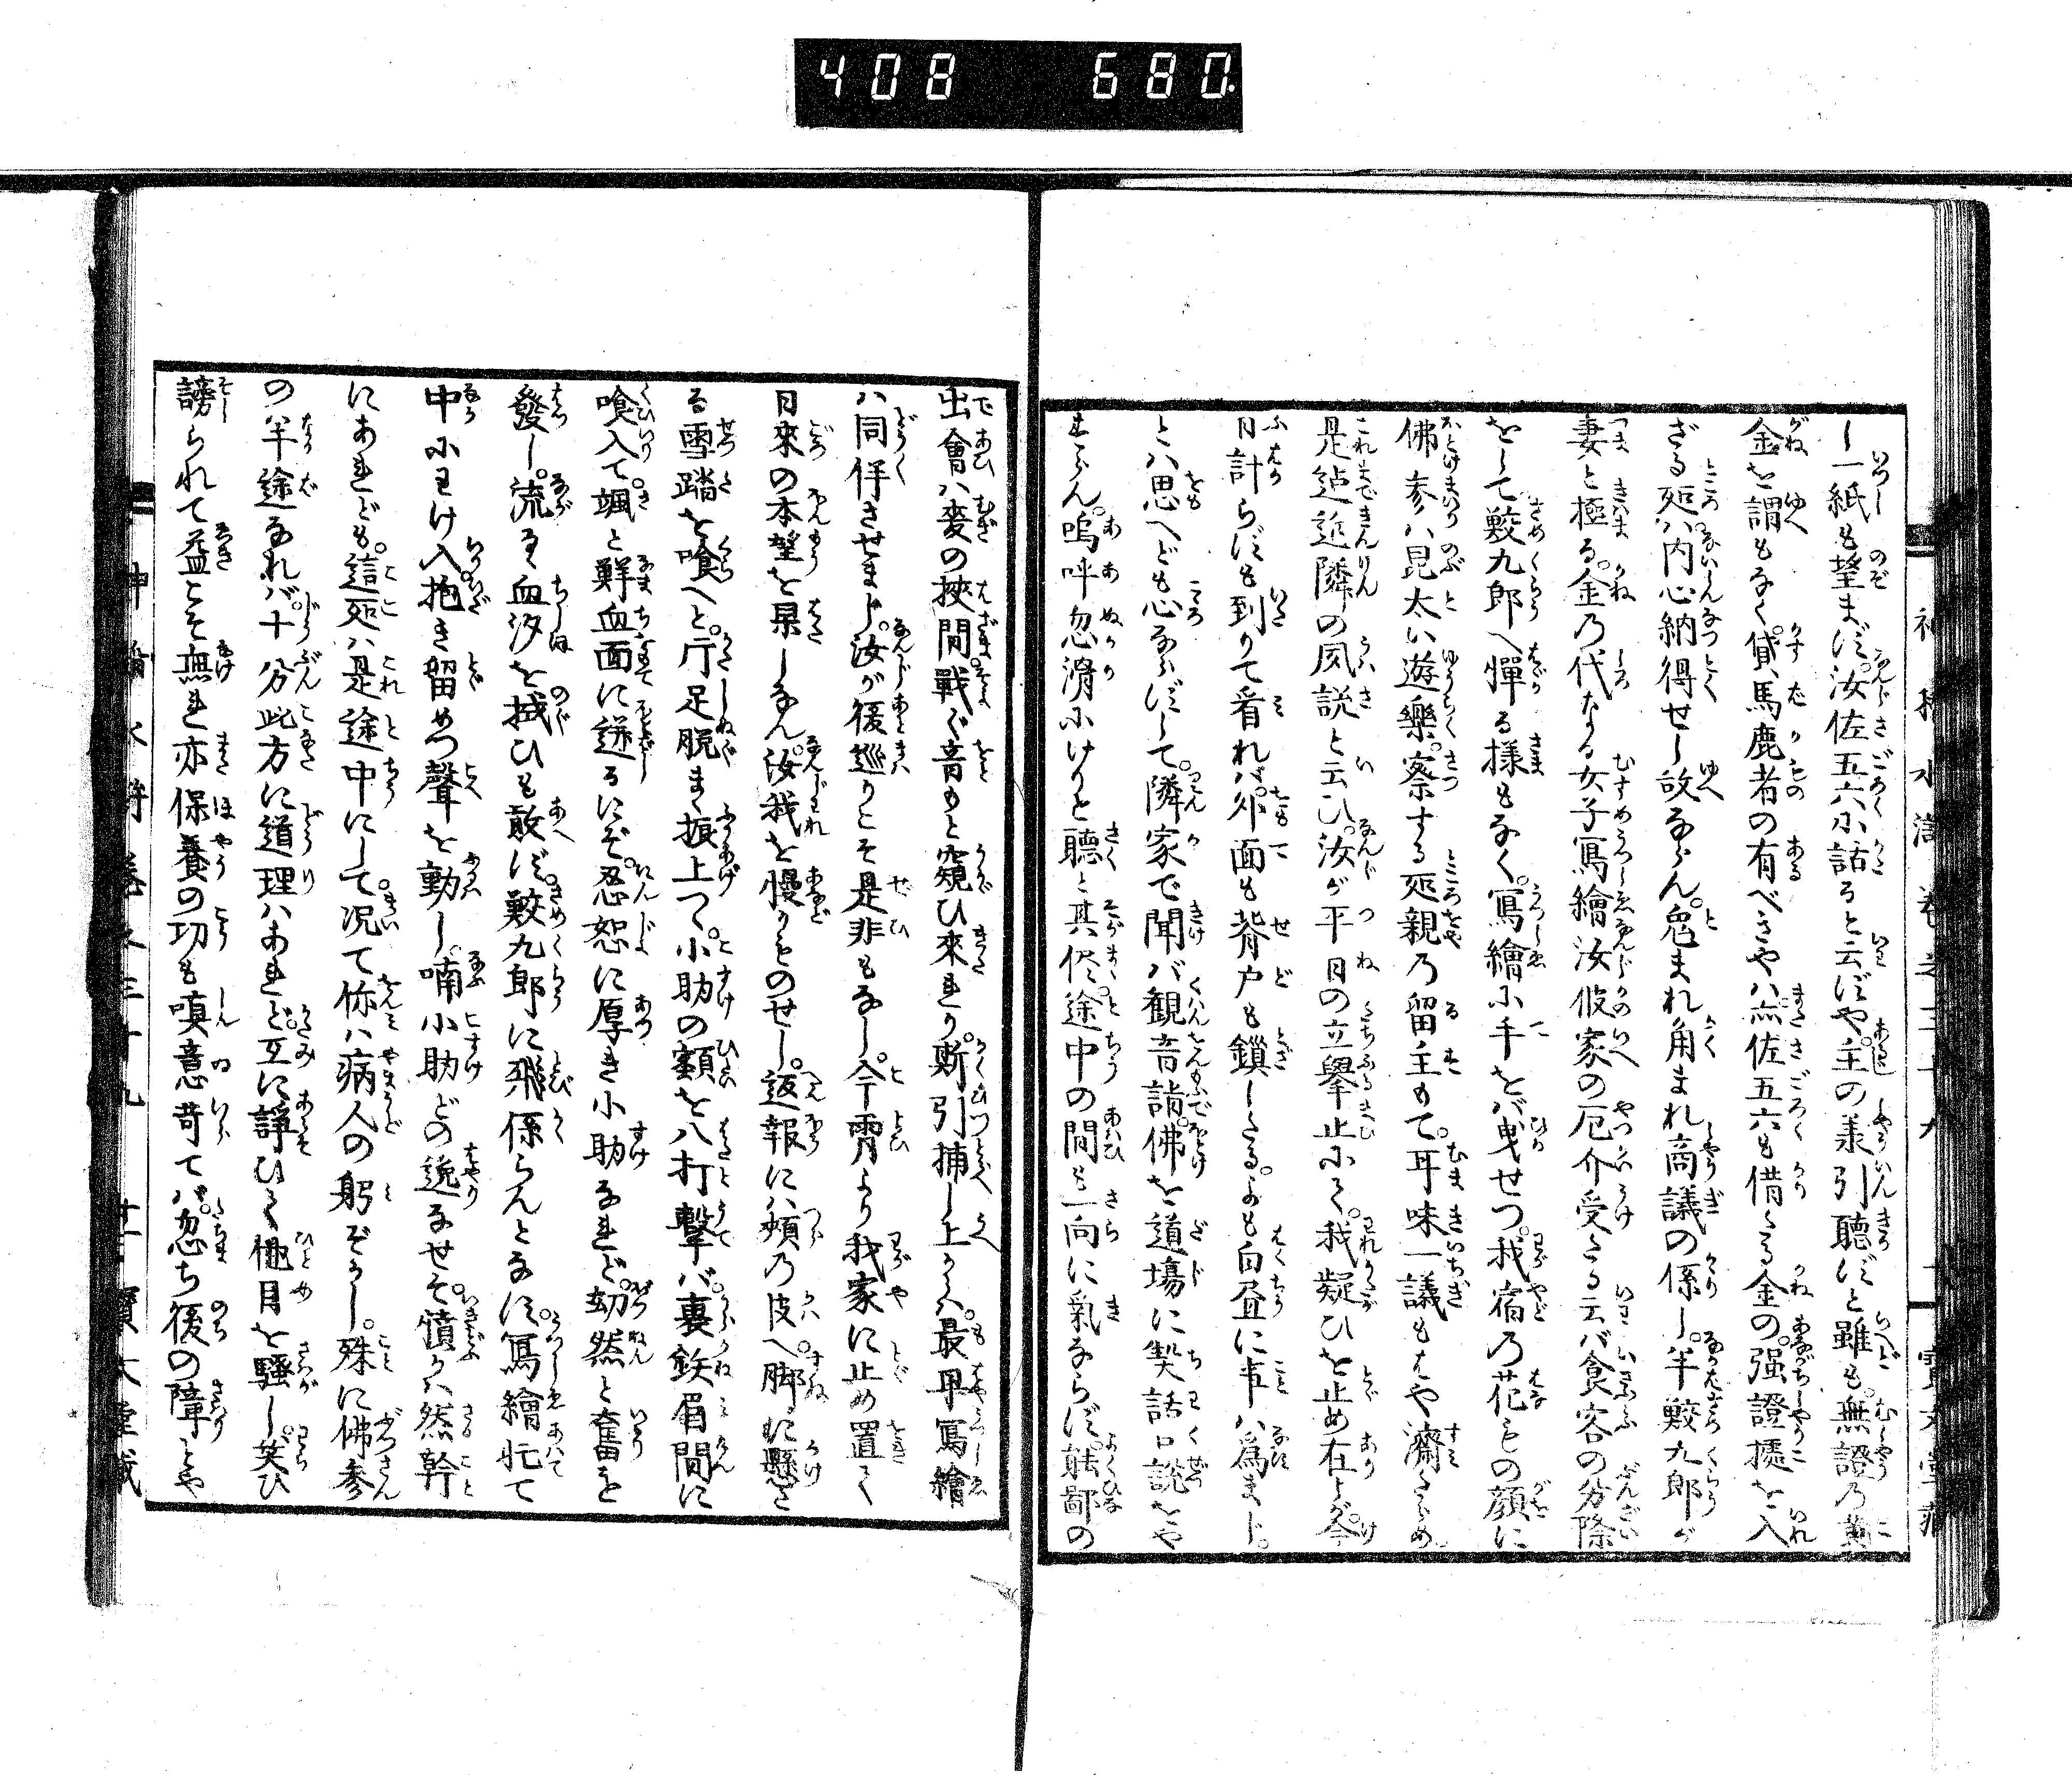 408 680
し一紙も望まず。汝佐五六小話ると云ずや。主の羕引聴ずと雖も。無證乃黄
金を謂もなく。貸馬鹿者の有べきやハ。点佐五六も借たる金の。强證攄を入
ざる処ハ。内心納得せし故ならん。兎まれ角まれ商議の係し。半鮫九郎が
妻と極る。金乃代なる女子冩繪汝彼家の厄介受たる云バ食客の分際
をして鮫九郎へ憚る様もなく。冩繪小手をバ曵せつ。我宿乃花との顔に
佛参ハ昆太い遊樂。察する処親乃留主もて。耳味一議もはや濟たらめ。
是迠近隣の風説と云ひ。汝が平日の立擧止にて。我疑ひを止め在しが。今
日計らずも到りて看れバ。外面も背戸も鎖したる。よも白昼に事ハ為まじ。
とハ思へども心ならずして。隣家で聞バ観音詣。佛を道塲に契話口説をや
せらん。嗚呼忽滑小けりと聴と其侭。途中の間も一向に氣ならず。能鄙の
出會ハ麦の挾間。戰ぐ音もと窺ひ來れり。斯引捕し上からハ。最早冩繪
ハ同伴させまじ。汝が後巡りこそ是非もなし。今霄より我家に止め置て
日來の本望を果しなん。汝我を慢りものせし。返報にハ頬乃皮へ。脚に懸た
る雪踏を喰へと。片足脱ま振上つ。小助の額を八打撃バ。裏鉄眉間に
喰入て。颯と鮮血面に迸るにぞ。忍恕に厚き小助なれど。勃然と奮を
發し。流るゝ血汐を拭ひも敢ず。鮫九郎に飛係らんとなす。冩繪忙て
中小わけ入。抱き留めつ聲を動し。喃小助どの逸なせそ。憤りハ然幹
にあれども。這処ハ是途中にして。况て你ハ病人の躬ぞかし。殊に佛参
の半途なれバ。十分此方に道理ハあれど。互に諍ひて他目を騷し。笑ひ
謗られて益こそ無れ。亦保養の功も嗔意苛てバ。忽ち後の障とや
神稻水滸 卷之三十九 廿一 寳文堂藏